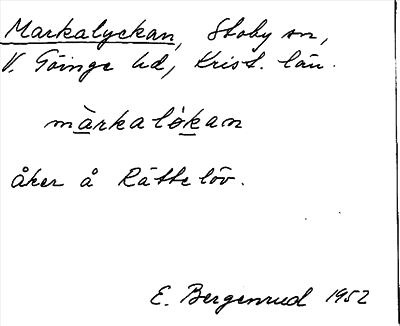 Markalyckan, Stoby sn,
V. Göinge hd, Krist. län.
màrkalókan
åker å Rättelöv.
E. Bergenrud 1952